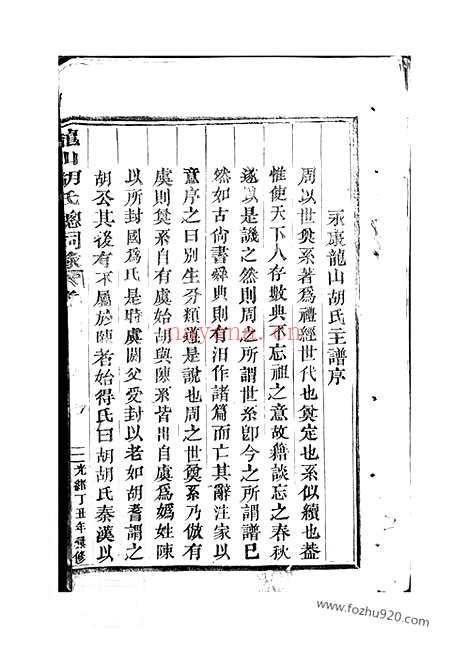 永康龍山胡氏主譜序
周以世奠系著爲禮經世代也奠定也系似續也葢
惟使天下人存數典不忘祖之意故籍談忘之春秋
遂以是譏之然則周之所謂世系卽今之所謂譜已
然如古尙書舜典則有汨作諸篇而亡其辭注家以
意序之曰別生分類道是說也周之世奠系乃倣有
虞則奠系自有虞始胡與陳系皆出自虞爲嬀姓陳
以所封國爲氏是時虞閼父受封以老如胡耇謂之
胡公其後有不屬於陳者始得氏曰胡胡氏秦漢以
龍山胡氏總祠
光緖丁丑年重修
nayona.cn
www.fozhu920.com